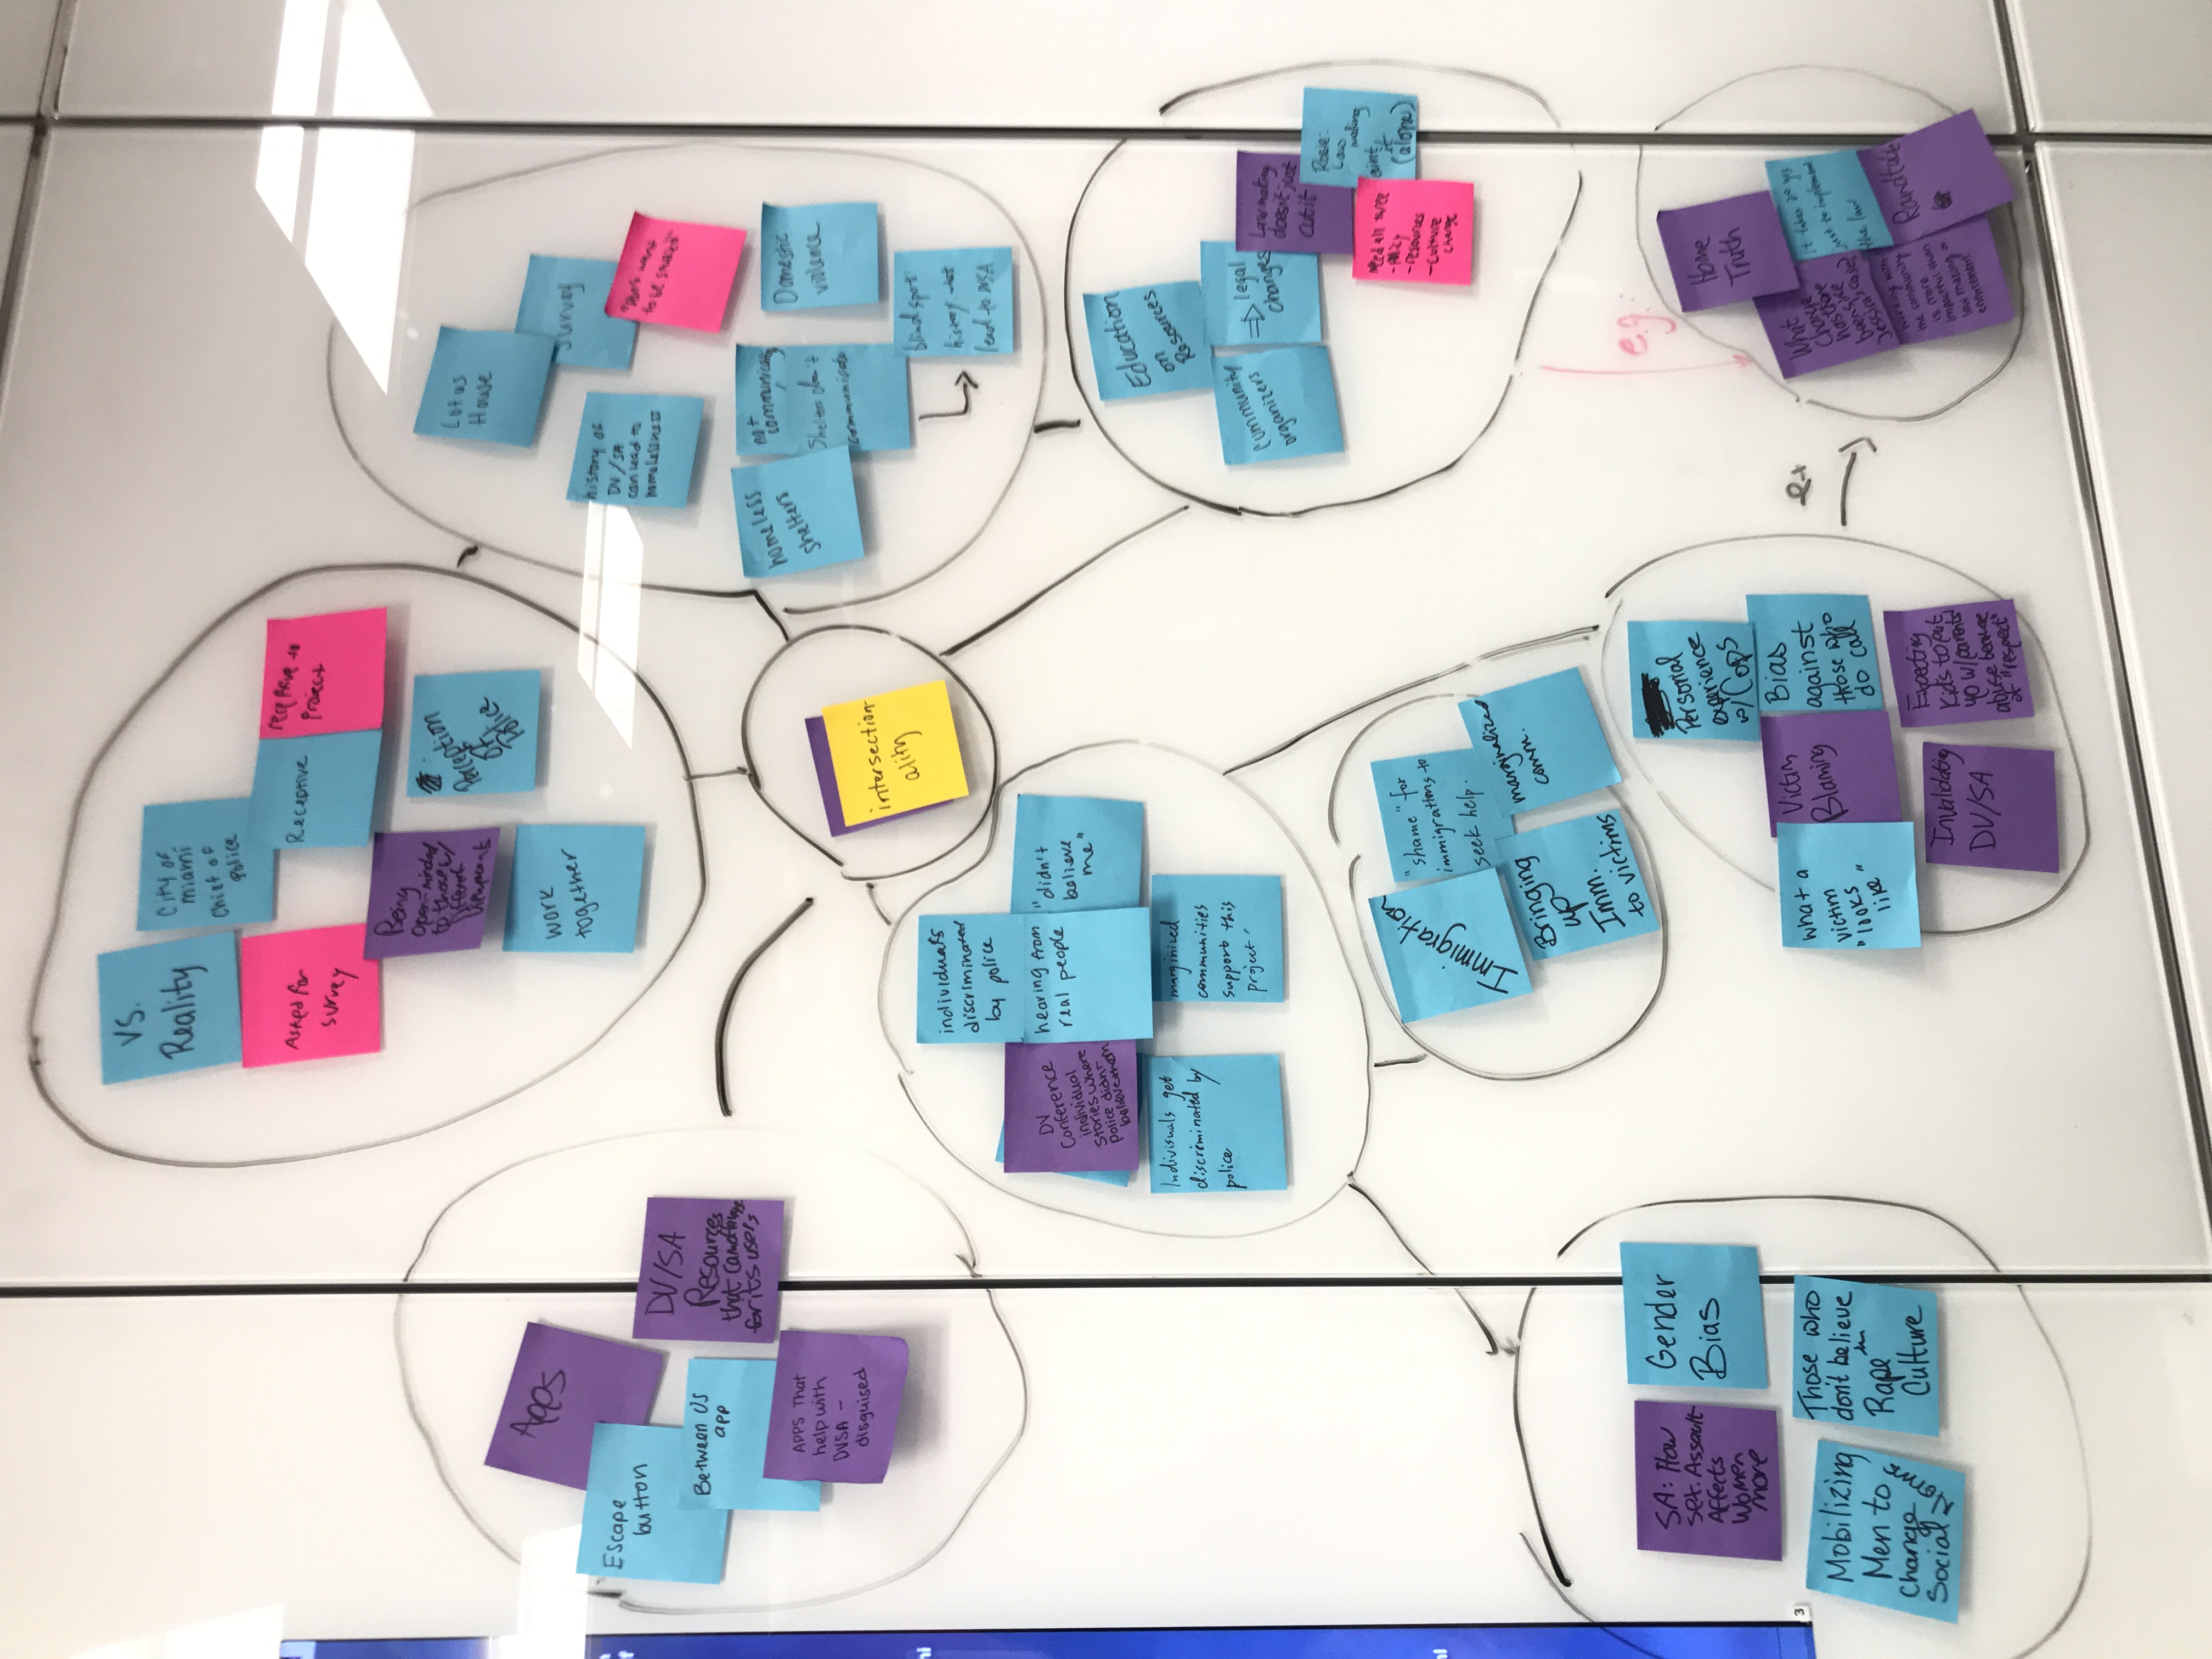 VS.
Reality
City of
miami
Chief of
Police
Asked for
survey
Receptive
receptive to
project
Being
open-minded
to those w/
Different
viewpoints
Perception
of
Police
work
together
Apps
Escape
button
Between US
app
DV/SA
Resources
that
for its users
APPS That
help with
DVSA –
disguised
Lotus
House
Survey
history of
DV/SA
can lead to
homelessness
"Don't want
to be
homeless
shelters
not
communicating
Shelters don't
communicate
Domestic
violence
blind spot:
history that
lead to DVSA
intersection-
ality
individuals
discriminated
by police
DV
Conference
individual
stories where
police didn't
believe them
hearing from
real people
"didn't
believe
me"
Indivisuals get
discriminated by
police
marginized
communities
support this
project
Education
on
Resources
Community
organizers
⇒ legal
changes
Lawmaking
doesn't just
cut it
Rosie:
Law
making
aint it
(alone)
Need all three
- Policy
- resources
- Culture
change
Immigration
"shame" for
immigrations to
seek help.
Bringing
up
Imm.
to victims
marginalized
comm.
e.g.:
SA: How
sex. Assault
Affects
Women
more
Gender
Bias
Mobilizing
Men to
Change
Social
Norms
Those who
don't believe
in
Rape
Culture
Personal
experience
w/ Cops
what a
victim
"looks
like"
Victim
Blaming
Bias
against
those who
do call
Invalidating
DV/SA
Expecting
kids to put
up w/ parents'
abuse because
of "respect"
ex
Home
Truth
What
change
has there
been since
Jessica's case?
it takes 20 yrs
just to implement
the law
working with
the community
is more
impactful than
law making or
enforcement
Roundtable
3